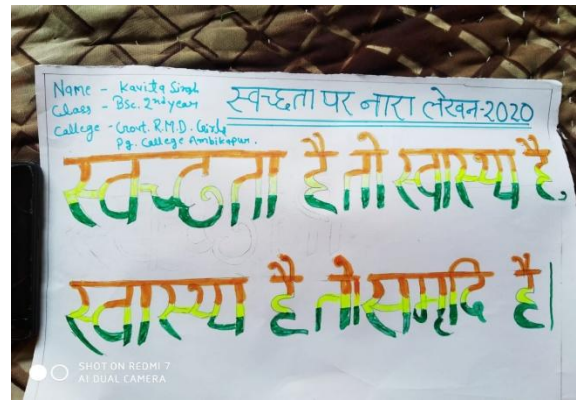 Name - Kavita Singh
Class - Bsc. 2nd year
College - Govt. R.M.D. Girls
Pg. College Ambikapur.
स्वच्छता पर नारा लेखन-2020
स्वच्छता है तो स्वास्थ्य है,
स्वास्थ्य है तो समृद्धि है।
SHOT ON REDMI 7
AI DUAL CAMERA